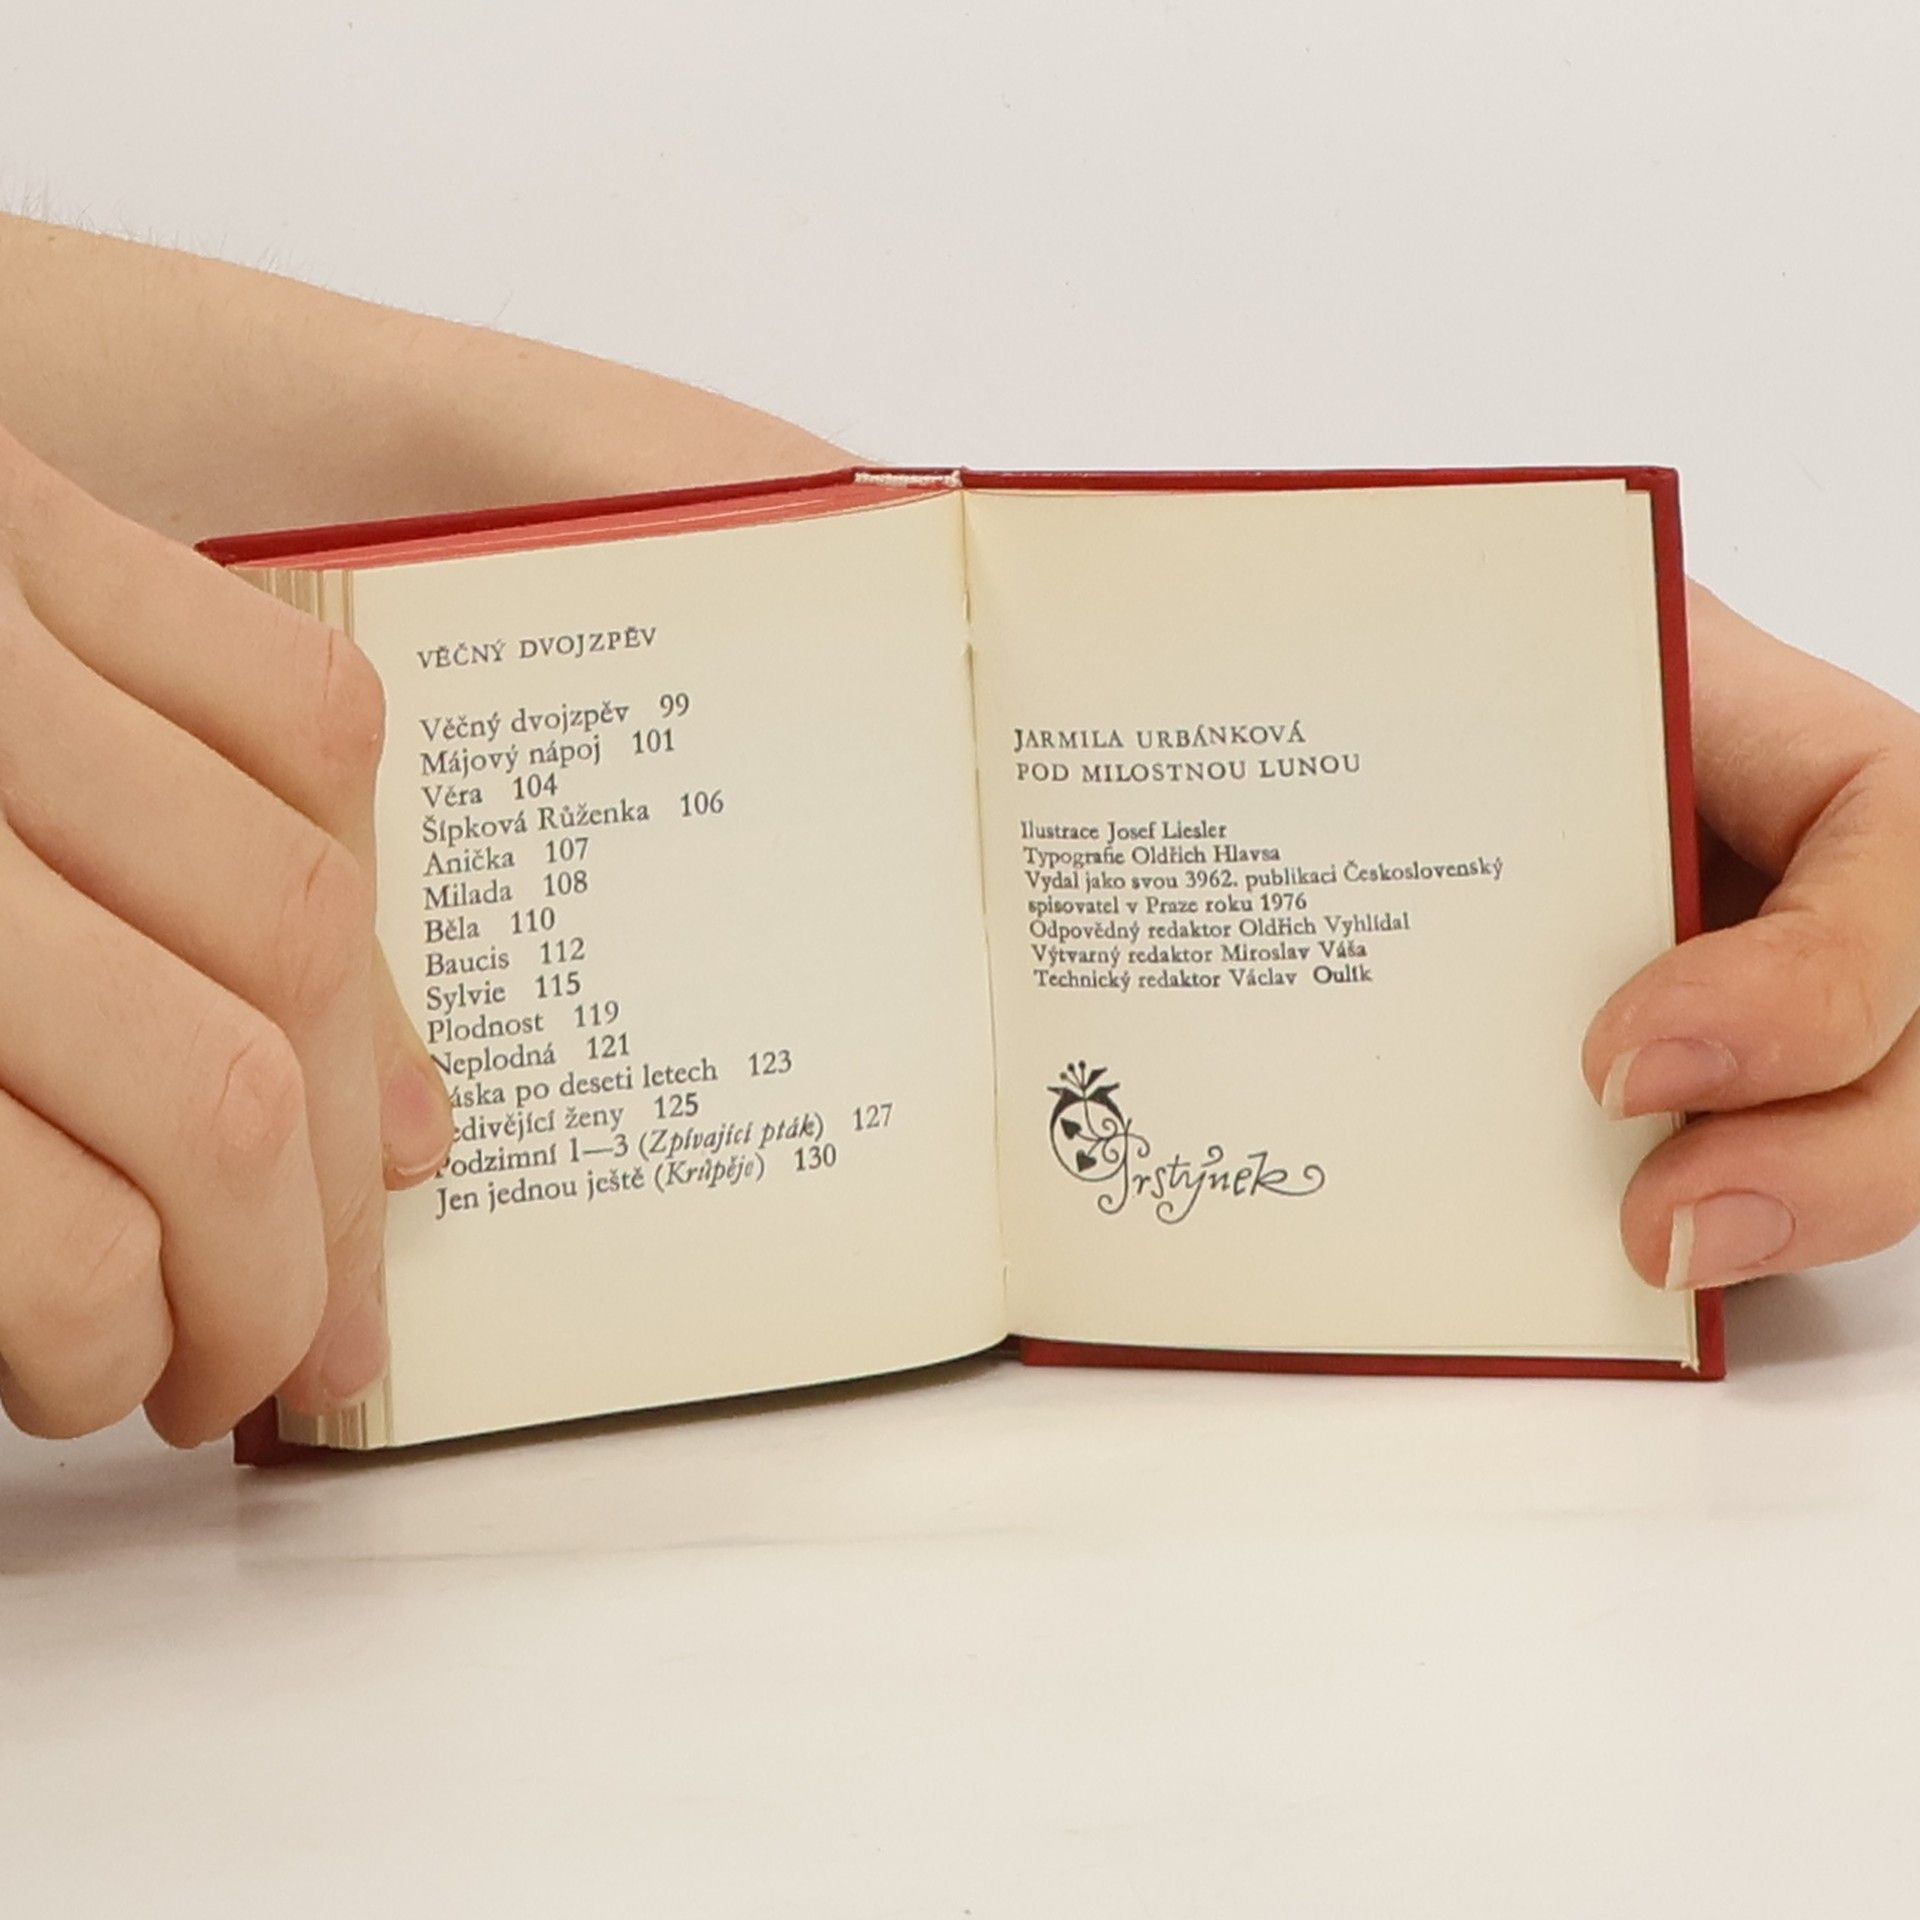 VĚČNÝ DVOJZPĚV
Věčný dvojzpěv 99
Májový nápoj 101
Věra 104
Šípková Růženka 106
Anička 107
Milada 108
Běla 110
Baucis 112
Sylvie 115
Plodnost 119
Neplodná 121
po deseti letech 123
ženy 125
Podzimní 1—3 (Zpívající pták) 127
Jen jednou ještě (Krůpěje) 130
JARMILA URBÁNKOVÁ
POD MILOSTNOU LUNOU
Ilustrace Josef Liesler
Typografie Oldřich Hlavsa
Vydal jako svou 3962. publikaci Československý
spisovatel v Praze roku 1976
Odpovědný redaktor Oldřich Vyhlídal
Výtvarný redaktor Miroslav Váša
Technický redaktor Václav Oulík
Prstýnek